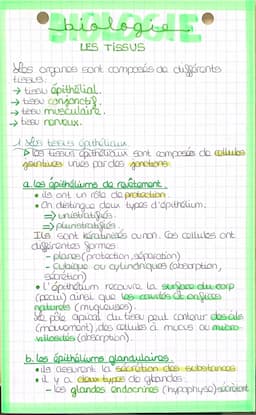 biologie
LES TISSUS
Les organes sont composés de différents
tissus.
→ tissu épithélial.
→ tissu conjonctif.
→ tissu musculaire.
→ tissu nerveux.
1. Les tissus épithéliaux
▷ les tissus épithéliaux sont composés de cellules
jointives unies par des jonctions.
a. les épithéliums de revêtement.
• ils ont un rôle de protection.
• On distingue deux types d'épithélium:
⇒ unistratifiés.
⇒ pluristratifiés.
Ils sont kératinisés ou non. Les cellules ont
différentes formes:
- planes (protection, séparation)
- cubique ou cylindriques (absorption,
sécrétion)
• l'épithélium recouvre la surface du corp
(peau) ainsi que les cavités et orifices
naturels (muqueuses).
Le pôle apical du tissu peut contenir des cils
(mouvement), des cellules à mucus ou micro-
villosités (absorption).
b. les épithéliums glandulaires.
• ils assurent la sécrétion des substances
• il y a deux types de glandes:
- les glandes endocrines (hypophyse) sécrètent